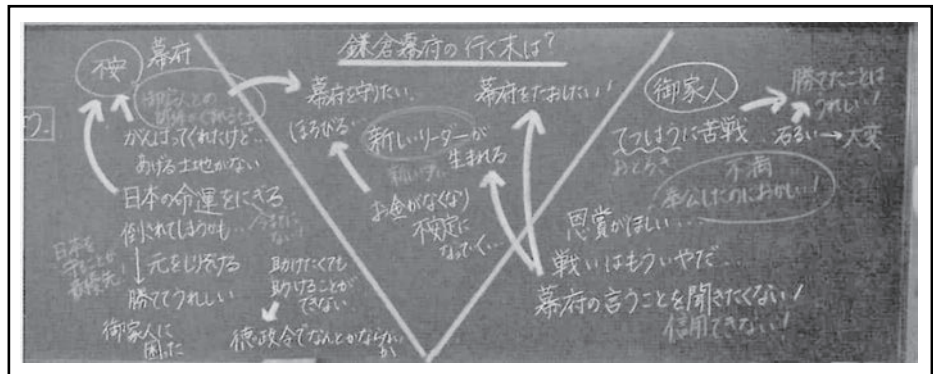 鎌倉幕府の行く末は?
不安
幕府
御家人との
がんばってくれたけど…
あげる土地がない
日本の命運をにぎる
倒されてしまうかも…
今までに
ない!
日本を
守ることが
最優先!
元をしりぞける
勝ててうれしい
御家人に
困った
助けたくても
助けることが
できない
徳政令でなんとかならないか
幕府を守りたい
ほろびる…
新しいリーダーが
生まれる
お金がなくなり
不安定に
なっていく…
幕府をたおしたい!
御家人
勝てたことは
うれしい!
てつはうに苦戦
おどろき
石るい→大変
不満
奉公したのにおかしい!
恩賞がほしい…
戦いはもういやだ…
幕府の言うことを聞きたくない!
信用できない!